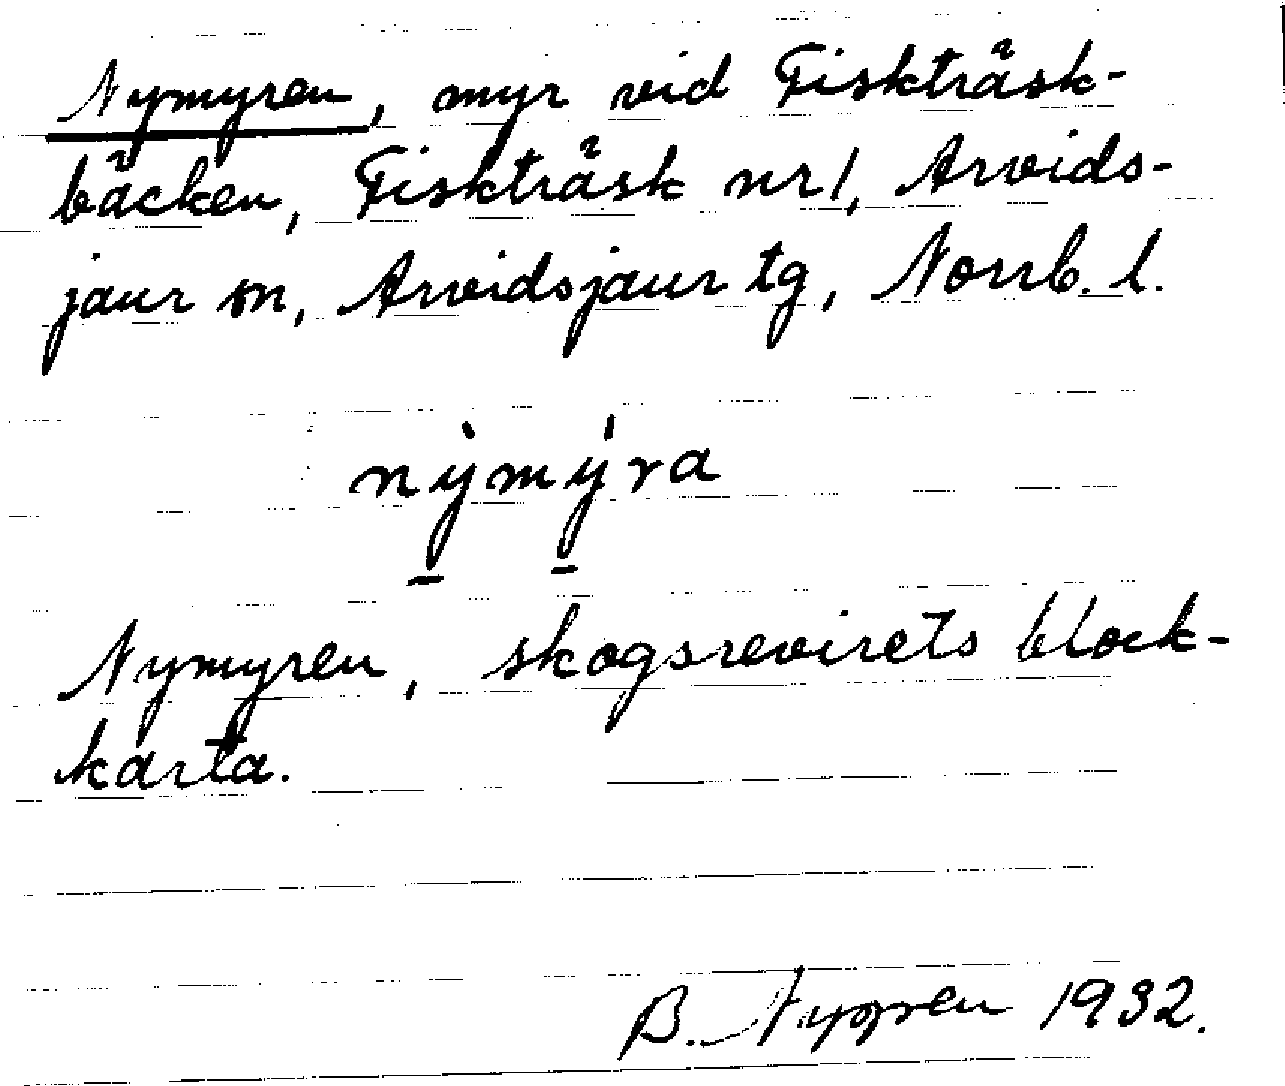 Nymyren, myr vid Fiskträsk-
bäcken, Fiskträsk nr 1, Arvids-
jaur sn, Arvidsjaur tg, Norrb. l.
nỳmýra
Nymyren, skogsrevirets block-
karta.
B. Nygren 1932.